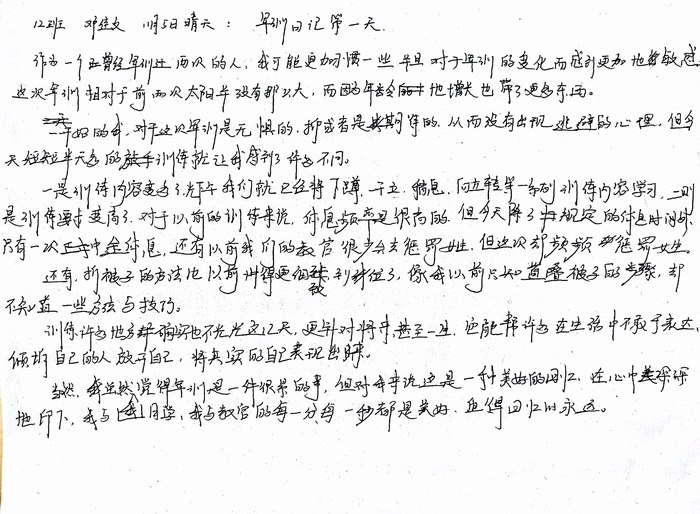 12班 邓佳文 11月5日晴天: 军训日记第一天.
作为一个已曾经军训过两次的人,我可能更加习惯一些.并且对于军训的变化而感到更加地敏感.
这次军训相对于前两次太阳并没有那么大,而因年龄的增大也带了更多东西。
开始的我,对于这次军训是无惧的,抑或者是期待的.从而没有出现逃避的心理,但今
天短短半天多的训练就让我感到了许多不同。
一是训练内容变多了,下午我们就已经将下蹲、稍息、向左转等一系列训练内容学习,二则
是训练要求变高了.对于以前的训练来说,休息频率是很高的.但今天除了规定的休息时间外,
只有一次中途休息,还有以前我们的教官很少会去惩罚女生.但这次却频频惩罚女生.
还有,折被子的方法也比以前讲得更细致到位了,像我以前只知道叠被子的步骤,却
不知道一些方法与技巧。
训练许多地方确实也不光光这几天,更针对将来,甚至一生,还能帮许多在生活中不敢于表达,
倾诉自己的人放下自己,将真实的自己表现出来。
当然,我虽然觉得军训是一件很累的事,但对我来说这是一种美好的回忆.在心中深深
地印下,我与同学、我与教官的每一分每一秒都是美好.且值得回忆的永远。